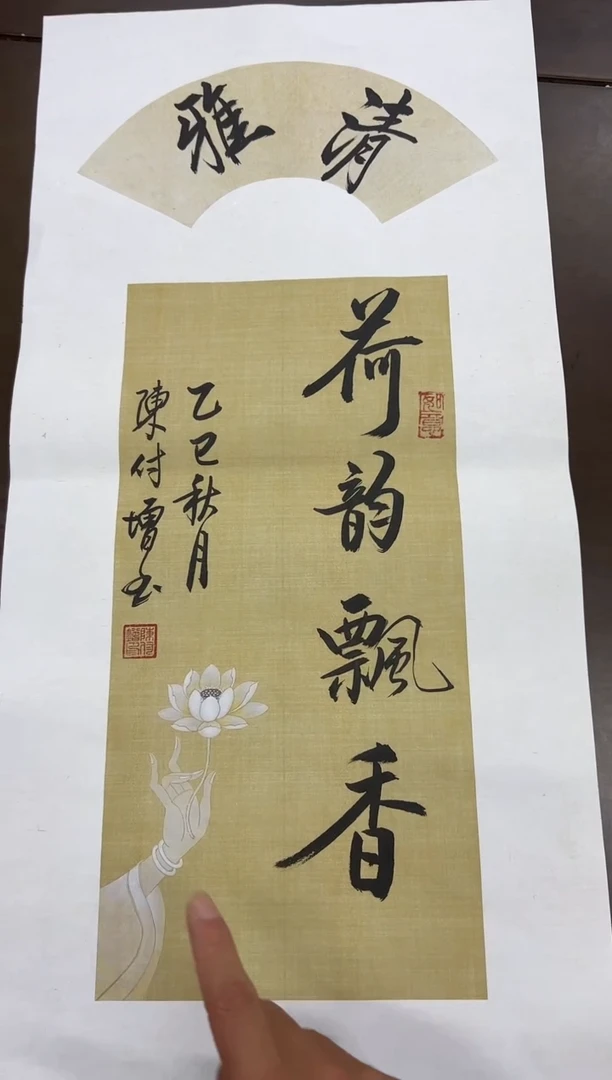 清雅
荷韵飄香
乙巳秋月
陳付増书
如意